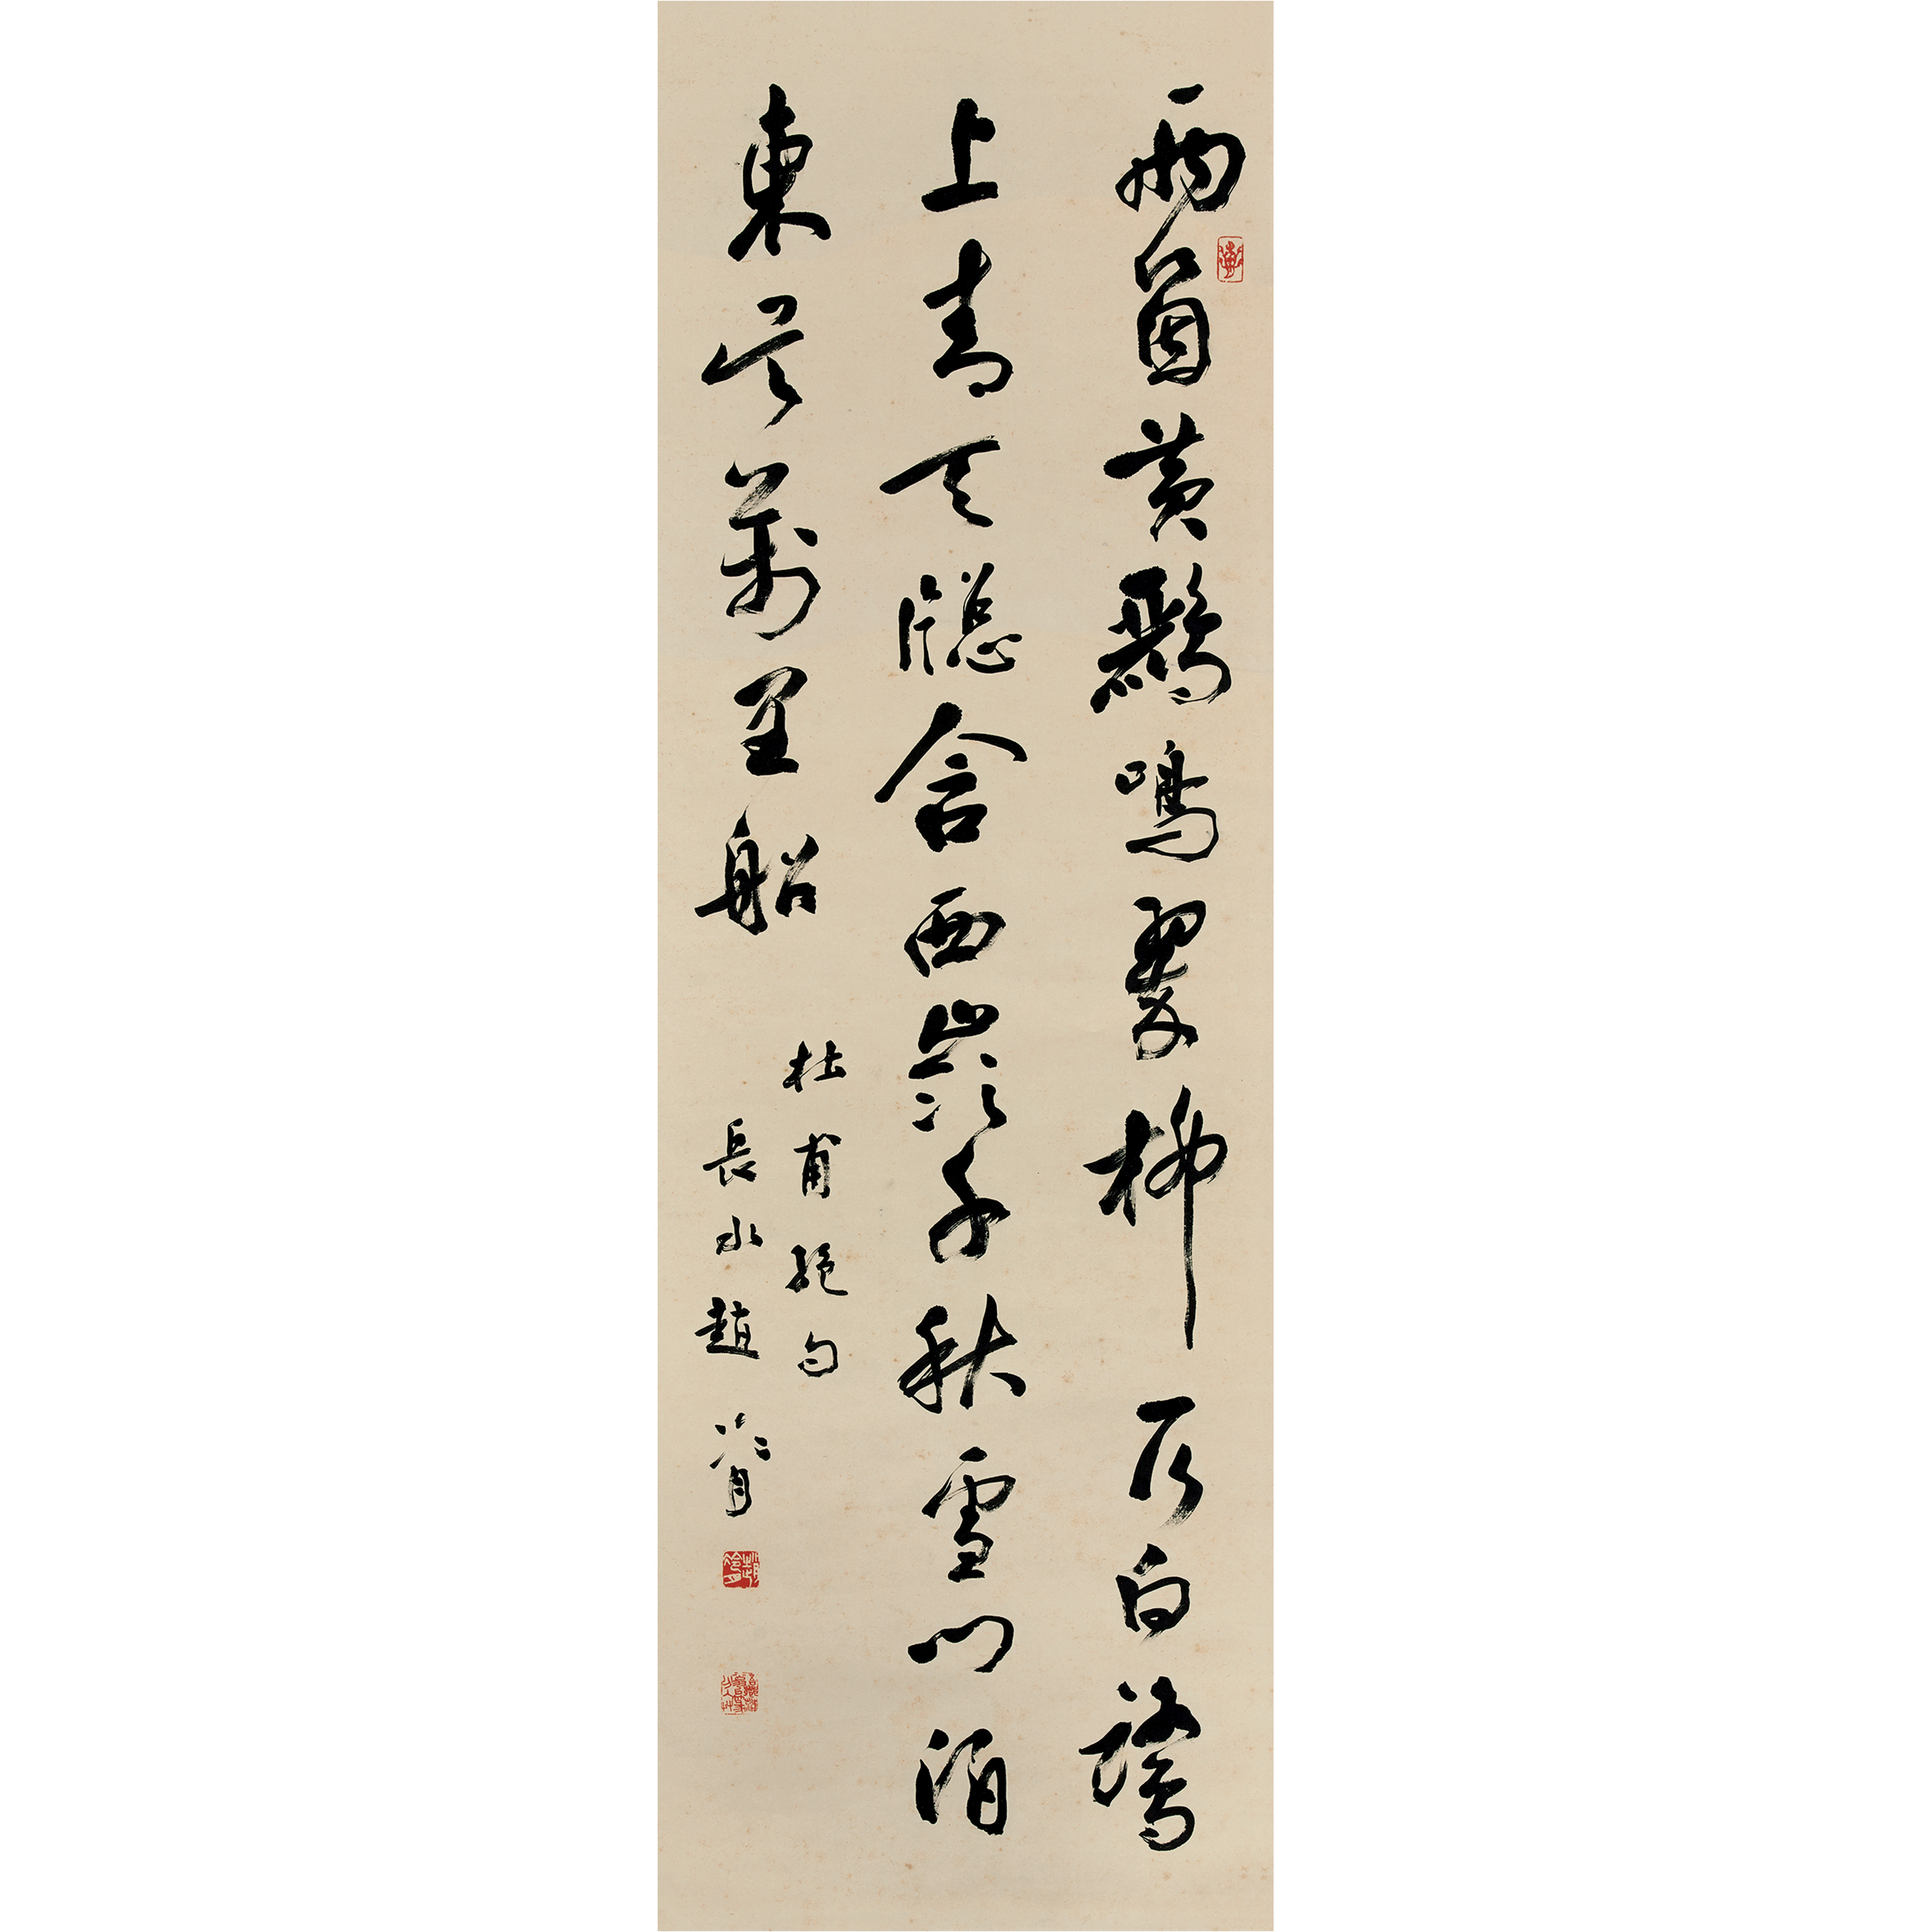 兩箇黃鸝鳴翠柳一行白鷺
上青天牕含西嶺千秋雪門泊
東吳萬里船
杜甫絕句
長水趙冷月
趙冷月